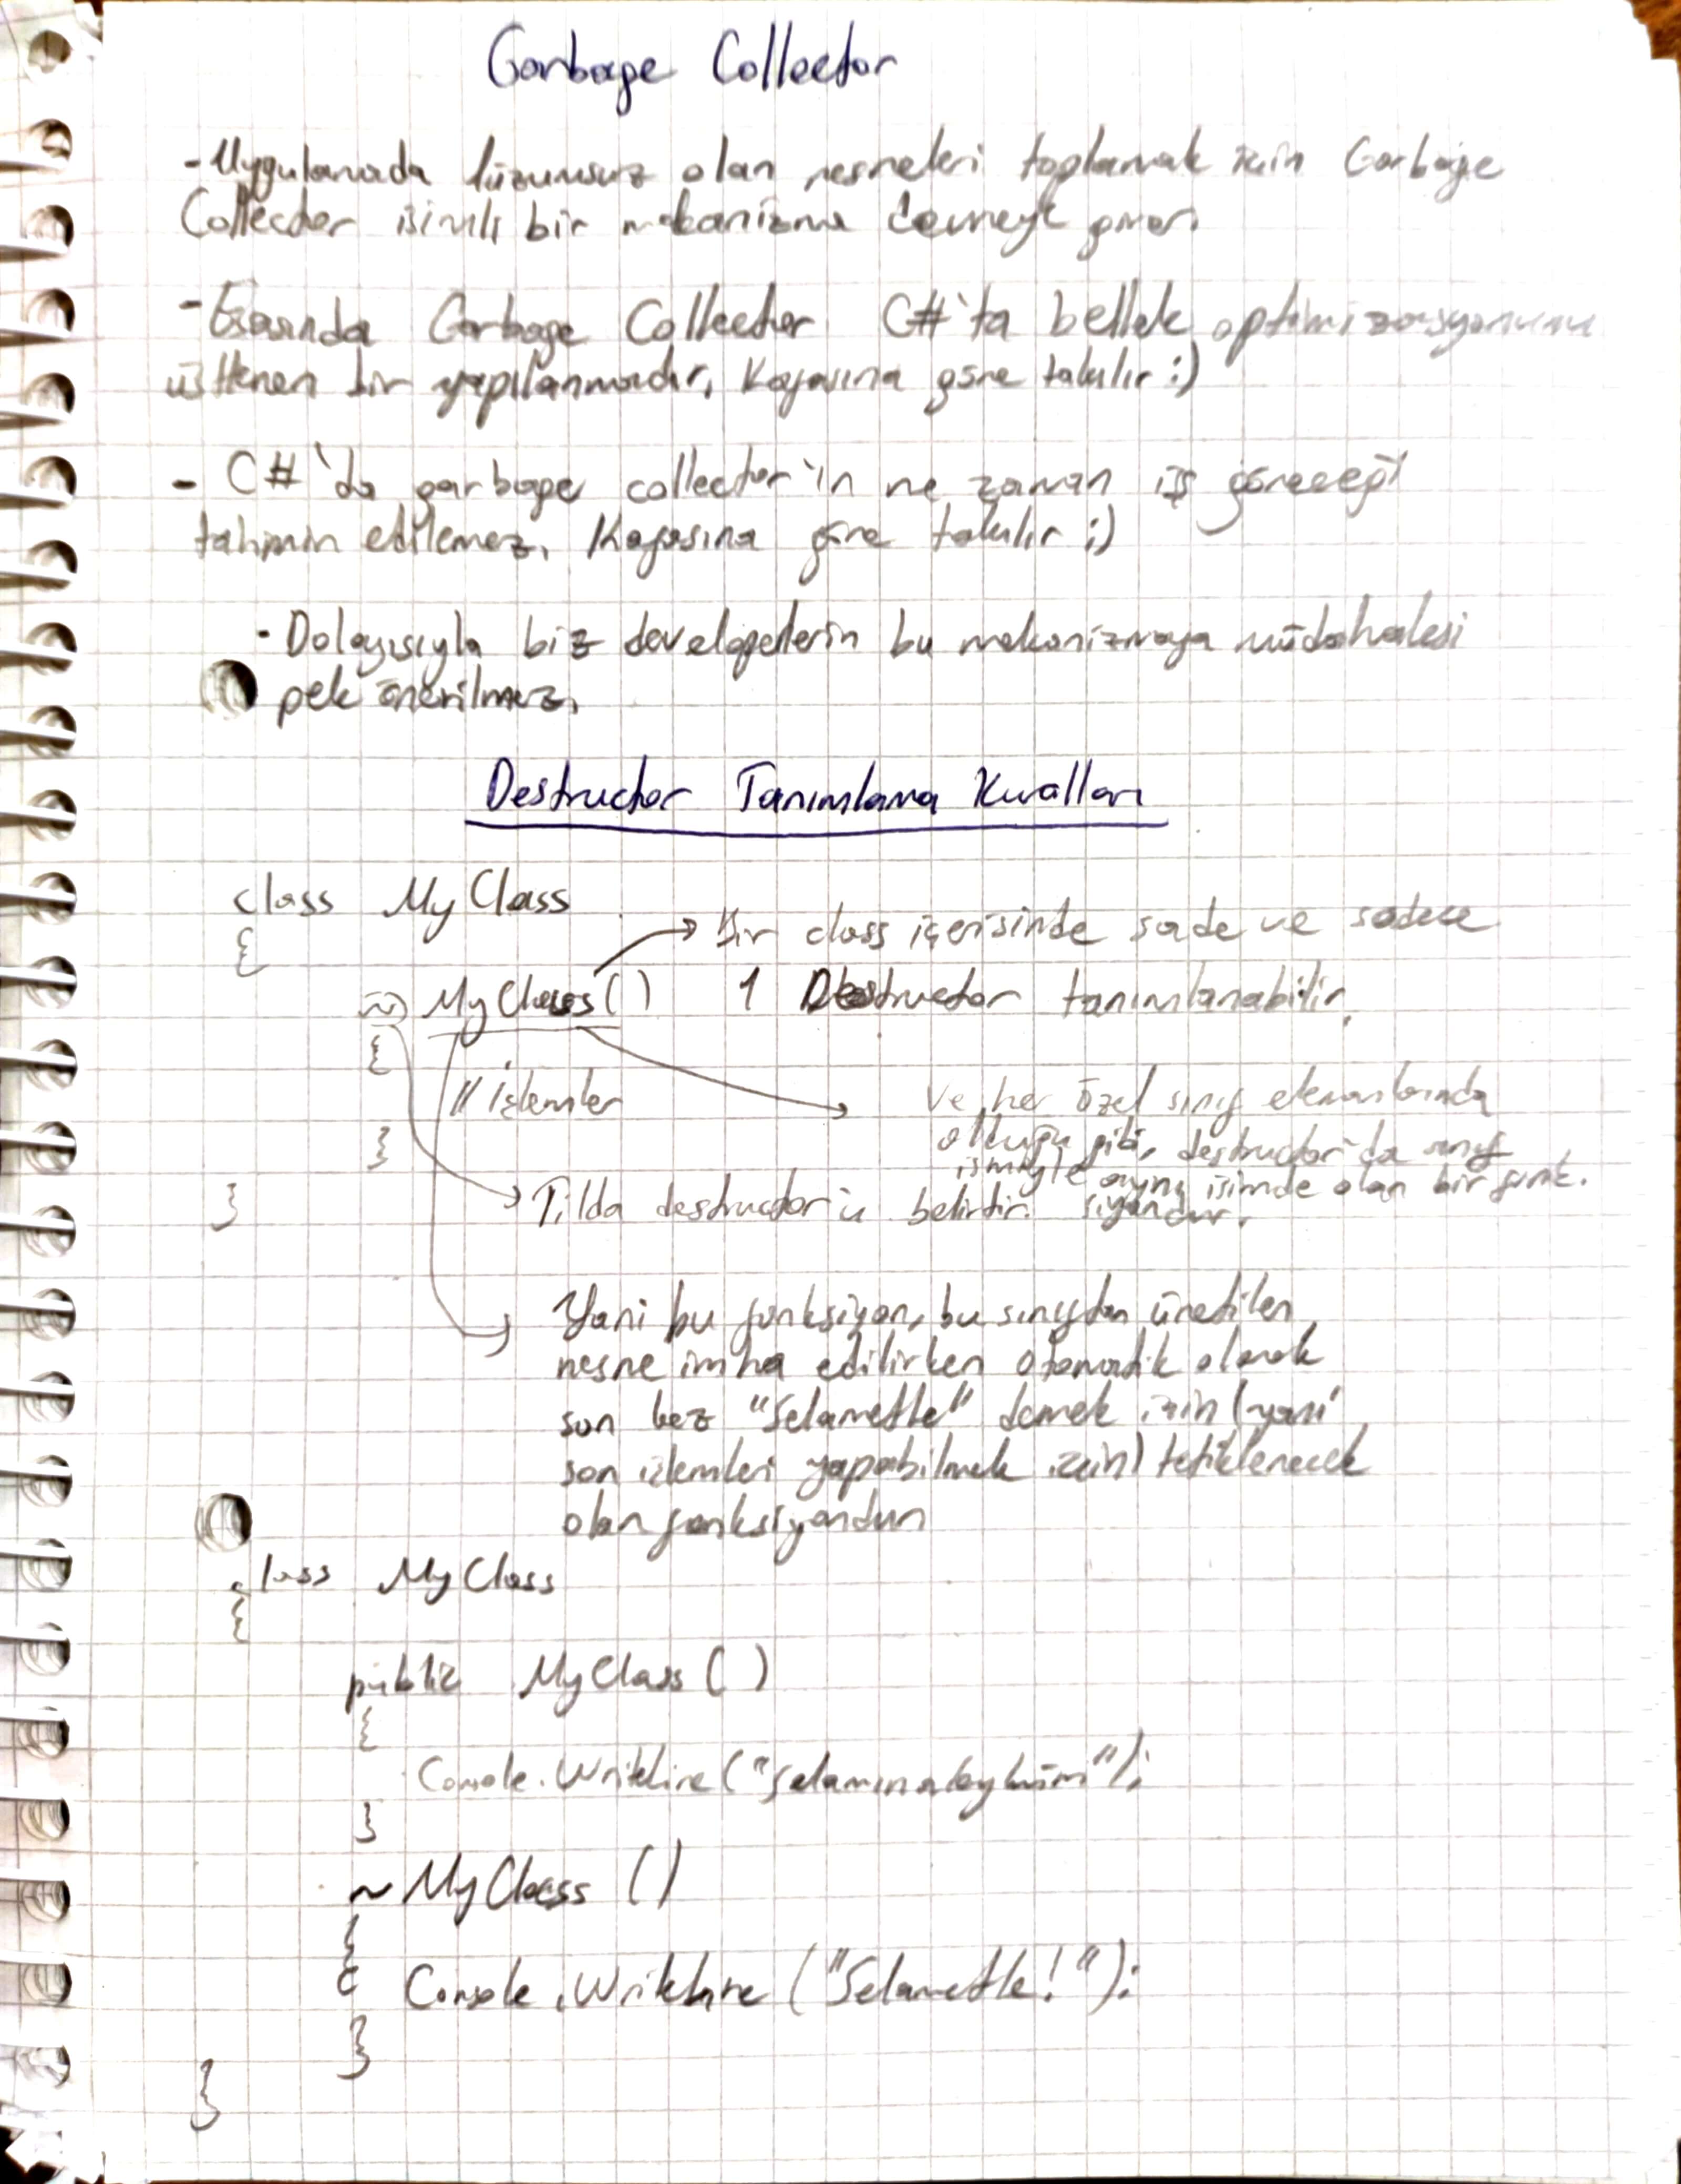 Garbage Collector
- Uygulamada lüzumsuz olan nesneleri toplamak için Garbage
Collector isimli bir mekanizma devreye girer.
- Esasında Garbage Collector C#'ta bellek optimizasyonunu
üstlenen bir yapılanmadır. Kafasına göre takılır :)
- C#'da garbage collector'ın ne zaman iş göreceği
tahmin edilemez. Kafasına göre takılır :)
- Dolayısıyla biz developerlerin bu mekanizmaya müdahalesi
pek önerilmez.
Destructor Tanımlama Kuralları
class MyClass
{
→ Bir class içerisinde sade ve sadece
~ MyClass() 1 Destructor tanımlanabilir.
{
// işlemler
→ Ve her özel sınıf elemanlarında
olduğu gibi, destructor da sınıf
}
ismiyle aynı isimde olan bir fonk-
} → Tilda destructor'u belirtir. siyondur.
→ Yani bu fonksiyon, bu sınıftan üretilen
nesne imha edilirken otomatik olarak
son kez "Selametle" demek için (yani
son işlemleri yapabilmek için) tetiklenecek
olan fonksiyondur
class MyClass
{
public MyClass()
{
Console.WriteLine(" ");
}
~ MyClass ()
{
Console.WriteLine ("Selametle!");
}
}